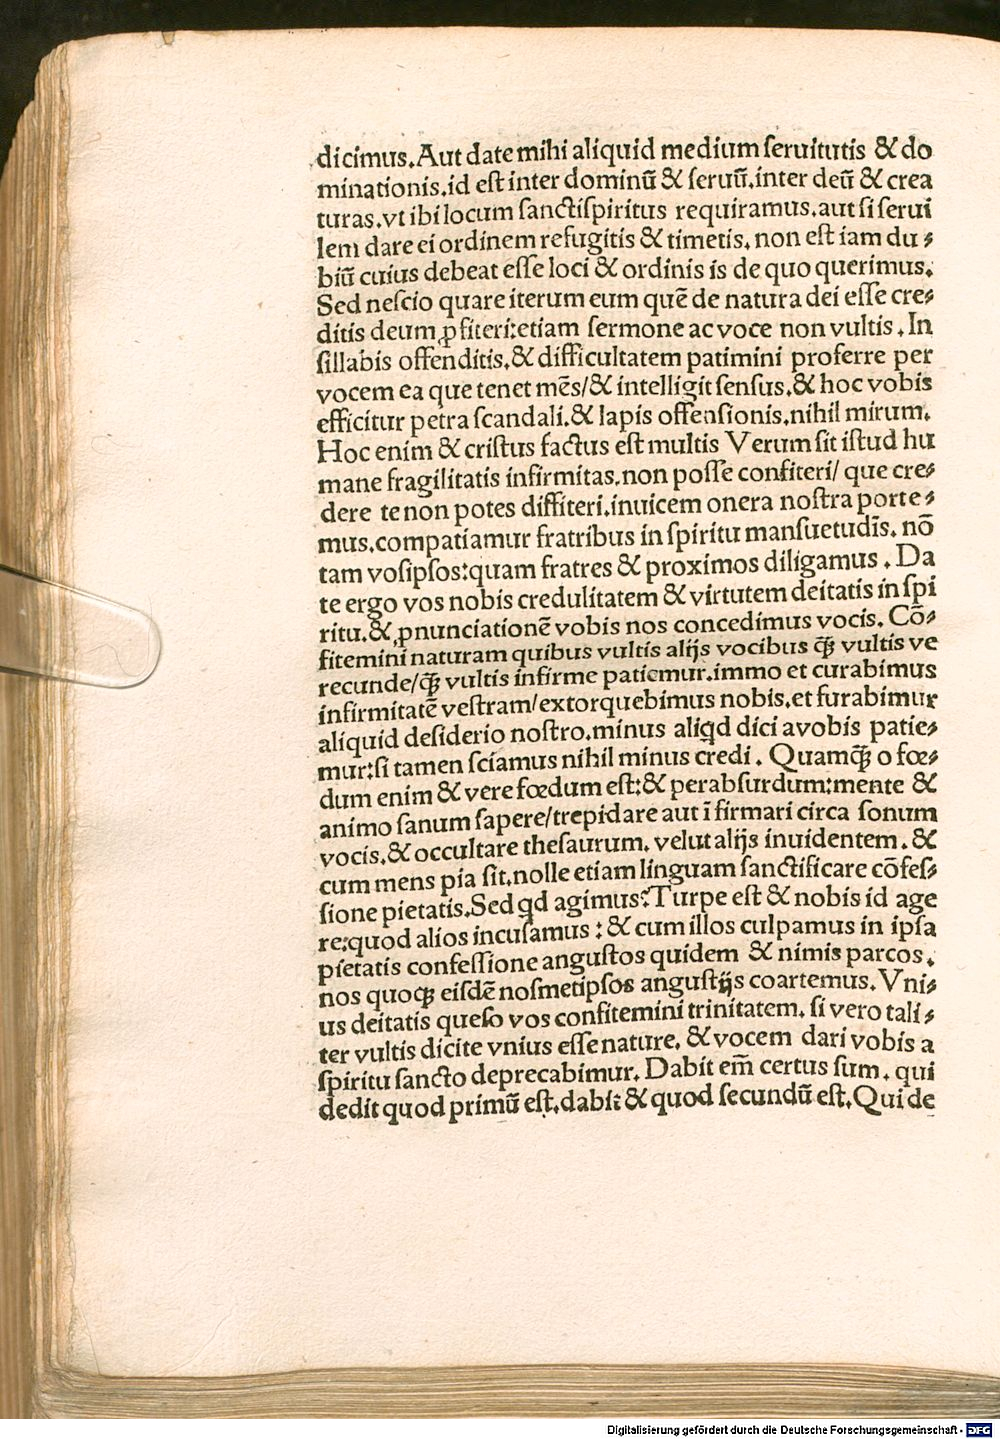 dicimus.Aut date mihi aliquid medium ſeruitutis & do
minationis.id eſt inter dominū & ſeruū.inter deū & crea
turas.vt ibi locum ſanctiſpiritus requiramus.aut ſi ſerui
lem dare ei ordinem refugitis & timetis. non eſt iam du⸗
biū cuius debeat eſſe loci & ordinis is de quo querimus.
Sed neſcio quare iterum eum quē de natura dei eſſe cre⸗
ditis deum ꝓfiteri:etiam ſermone ac voce non vultis.In
ſillabis offenditis.& difficultatem patimini proferre per
vocem ea que tenet mēs/& intelligit ſenſus.& hoc vobis
efficitur petra ſcandali.& lapis offenſionis.nihil mirum.
Hoc enim & criſtus factus eſt multis Verum ſit iſtud hu
mane fragilitatis infirmitas.non poſſe confiteri/ que cre⸗
dere te non potes diffiteri.inuicem onera noſtra porte⸗
mus.compatiamur fratribus in ſpiritu manſuetudīs. nō
tam voſipſos:quam fratres & proximos diligamus . Da
te ergo vos nobis credulitatem & virtutem deitatis in ſpi
ritu.& ꝓnunciationē vobis nos concedimus vocis. Cō⸗
fitemini naturam quibus vultis alijs vocibus ꝙ̃ vultis ve
recunde/ꝙ̃ vultis infirme patiemur.immo et curabimus
infirmitatē veſtram/extorquebimus nobis.et furabimur
aliquid deſiderio noſtro.minus aliꝗd dici avobis patie⸗
mur:ſi tamen ſciamus nihil minus credi . Quamꝙ̃ o fœ⸗
dum enim & vere fœdum eſt:& perabſurdum:mente &
animo ſanum ſapere/trepidare aut īfirmari circa ſonum
vocis.& occultare theſaurum. velut alijs inuidentem. &
cum mens pia ſit.nolle etiam linguam ſanctificare cōfeſ⸗
ſione pietatis.Sed ꝗd agimus?Turpe eſt & nobis id age
re:quod alios incuſamus : & cum illos culpamus in ipſa
pietatis confeſſione anguſtos quidem & nimis parcos.
nos quoqꝫ eiſdē noſmetipſos anguſtijs coartemus. Vni⸗
us deitatis queſo vos confitemini trinitatem. ſi vero tali⸗
ter vultis dicite vnius eſſe nature. & vocem dari vobis a
ſpiritu ſancto deprecabimur. Dabit em̄ certus ſum. qui
dedit quod primū eſt.dabit & quod ſecundū eſt.Qui de
Digitalisierung gefördert durch die Deutsche Forschungsgemeinschaft - DFG